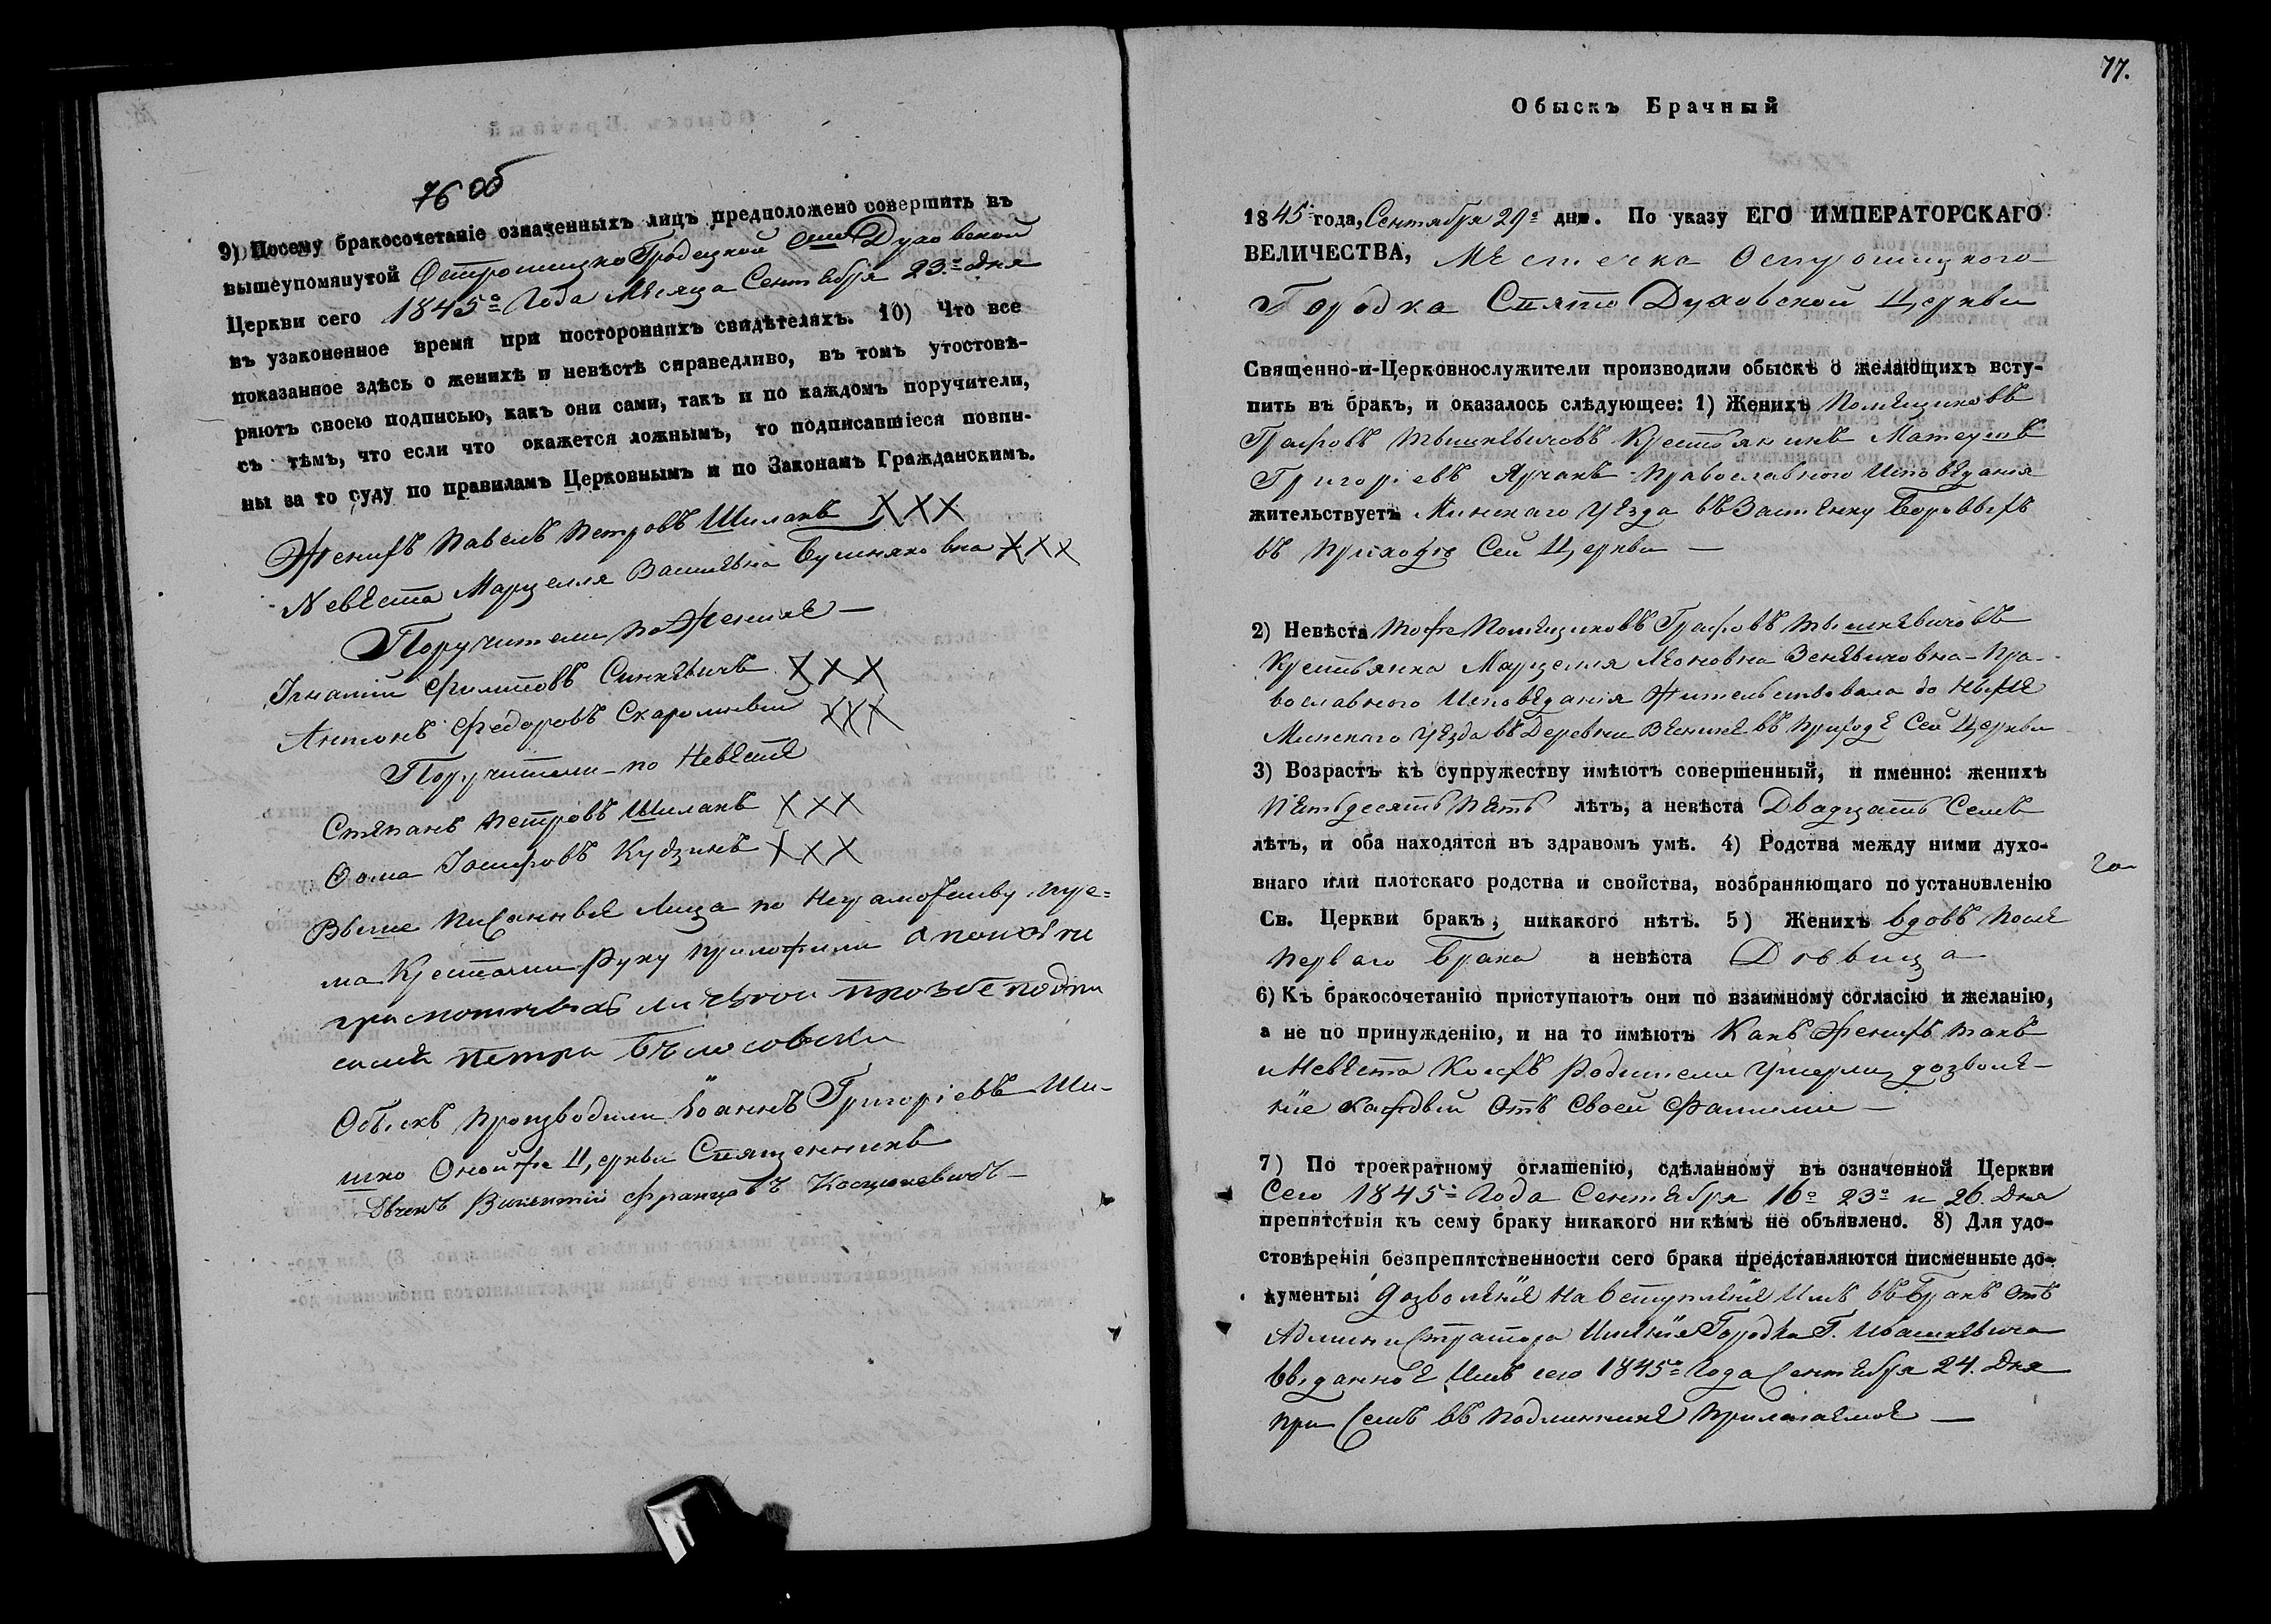 76 об
9) Посему бракосочетаніе означенныхъ лицъ предположено совершить въ
вышеупомянутой Острошицко Гродецкой Свято Духовской
Церкви сего 1845º Года Мѣсяца Сентября 23º дня
въ узаконенное время при постороннихъ свидѣтеляхъ. 10) Что все
показанное здѣсь о женихѣ и невѣстѣ справедливо, въ томъ утостовѣ-
ряютъ своею подписью, какъ они сами, такъ и по каждомъ поручители,
съ тѣмъ, что если что окажется ложнымъ, то подписавшіеся повин-
ны за то суду по правиламъ Церковнымъ и по Законамъ Гражданскимъ.
Женихъ Павелъ Петровъ Шилакъ ХХХ
Невѣста Марцелля Василѣвна Бушняковна ХХХ
Поручители по Женихѣ —
Игнатій Филиповъ Синкѣвичъ ХХХ
Антонъ Федоровъ ХХХ
Поручители по Невѣстѣ
Стѣпанъ Петровъ Шилакъ ХХХ
Ѳома Іосифовъ Кудзинъ ХХХ
Выше писанныѣ Лица по Неграмотству тре=
ма Крестами Руку приложили а по ихъ не
грамотности личной прозбе подпи
салъ Петра Бѣлосовски
Обыскъ производили Іоаннъ Григоріевъ Ши-
шко Оной же Церкви Священникъ
Дьячекъ Викентій Францовъ Косцюкевичъ —
77.
Обыскъ Брачный
1845 года, Сентября 29º дня. По указу ЕГО ИМПЕРАТОРСКАГО
ВЕЛИЧЕСТВА, Мѣстечка Острошицкого
Городка Свято Духовской Церкви
Священно-и-Церковнослужители производили обыскъ о желающихъ всту-
пить въ бракъ, и оказалось слѣдующее: 1) Женихъ Помѣщиковъ
Графовъ Тышкѣвичовъ Крестьянинъ Матеушъ
Григоріевъ Ярчакъ Православного Исповѣданія
жительствуетъ Минскаго Уѣзда въ Застѣнку Боровыхъ
въ приходѣ Сей Церкви —
2) Невѣста тоже Помѣщиковъ Графовъ Тышкѣвичовъ
Крестьянка Марцелля Лѣоновна Зенѣвичовна Пра-
вославного Исповѣданія Жительствовала до Нынѣ
Минскаго Уѣзда въ Деревни Вѣсникѣ въ приходѣ Сей Церкви
3) Возрастъ къ супружеству имѣютъ совершенный, и именно: женихъ
Пѣтьдесятъ Пѣть лѣтъ, а невѣста Двадцать Семь
лѣтъ, и оба находятся въ здравомъ умѣ. 4) Родства между ними духо-
внаго или плотскаго родства и свойства, возбраняющаго по установленію
Св. Церкви бракъ, никакого нѣтъ. 5) Женихъ вдовъ Послѣ
перваго Брака а невѣста Дѣвица
6) Къ бракосочетанію приступаютъ они по взаимному согласію и желанію,
а не по принужденію, и на то имѣютъ Какъ Женихъ такъ
и Невѣста Коихъ Родители Умерли дозволѣ-
ніе каждый Отъ Своей Фамиліи —
7) По троекратному оглашенію, сдѣланному въ означенной Церкви
Сего 1845º Года Сентября 16º 23º и 26. Дня
препятствія къ сему браку никакого ни кѣмъ не объявлено. 8) Для удо-
стовѣренія безпрепятственности сего брака представляются писменные до-
кументы: дозволѣніѣ на вступлѣніѣ Имъ въ Бракъ отъ
Администратора Имѣнія Городка Г. Ивашкѣвича
выданноѣ Имъ сего 1845º Года Сентября 24. Дня
при Семъ въ подлинникѣ прилагаемоѣ —